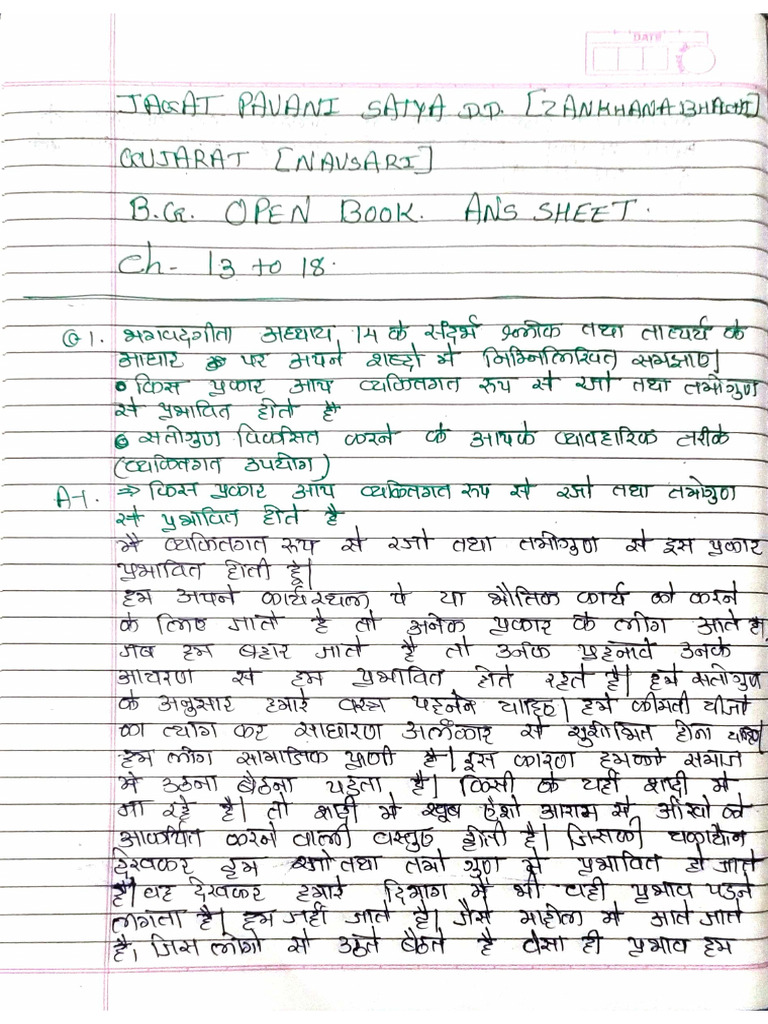 DATE
JAGAT PAVANI SATYA D.D. [ZANKHANA BHAGHI]
GUJARAT [NAVSARI]
B.G. OPEN BOOK. ANS SHEET.
Ch- 13 to 18.
Q1. भगवदगीता अध्याय 14 के संदर्भ श्लोक तथा तात्पर्य के
आधार पर अपने शब्दो मे निम्निलिखित समझाए|
किस प्रकार आप व्यकितगत रूप से रजो तथा तमोगुण
से प्रभावित होते है
सतोगुण विकसित करने के आपके व्यावहारिक तरीके
(व्यकितगत उपयोग)
A-1. ⇒ किस प्रकार आप व्यकितगत रूप से रजो तथा तमोगुण
से प्रभावित होते है
मै व्यकितगत रूप से रजो तथा तमोगुण से इस प्रकार
प्रभावित होती हूँ|
हम अपने कार्यस्थल पे या भौतिक कार्य को करने
के लिए जाते है तो अनेक प्रकार के लोग आते है,
जब हम बहार जाते है तो उनके पहनावे उनके
आचरण से हम प्रभावित होते रहते है| हमे सतोगुण
के अनुसार हमारे वस्त्र पहनने चाहिए| हमे कीमती चीजो
का त्याग कर साधारण अलंकार से सुशोभित होना चाहिए|
हम लोग सामाजिक प्राणी है| इस कारण हमको समाज
मे उठना बैठना पड़ता है| किसी के यहाँ शादी मे
जा रहे है| तो शादी मे खूब ऐशो आराम से आँखो को
आकर्षित करने वाली वस्तुए होती है| जिसकी चकाचौन
देखकर हम रजो तथा तमो गुण से प्रभावित हो जाते
है| वह देखकर हमारे दिमाग मे भी वही प्रभाव पड़ने
लगता है| हम जहाँ जाते है| जैसे माहोल मे आते जाते
है, जिस लोगो से उठते बैठते है वैसा ही प्रभाव हम